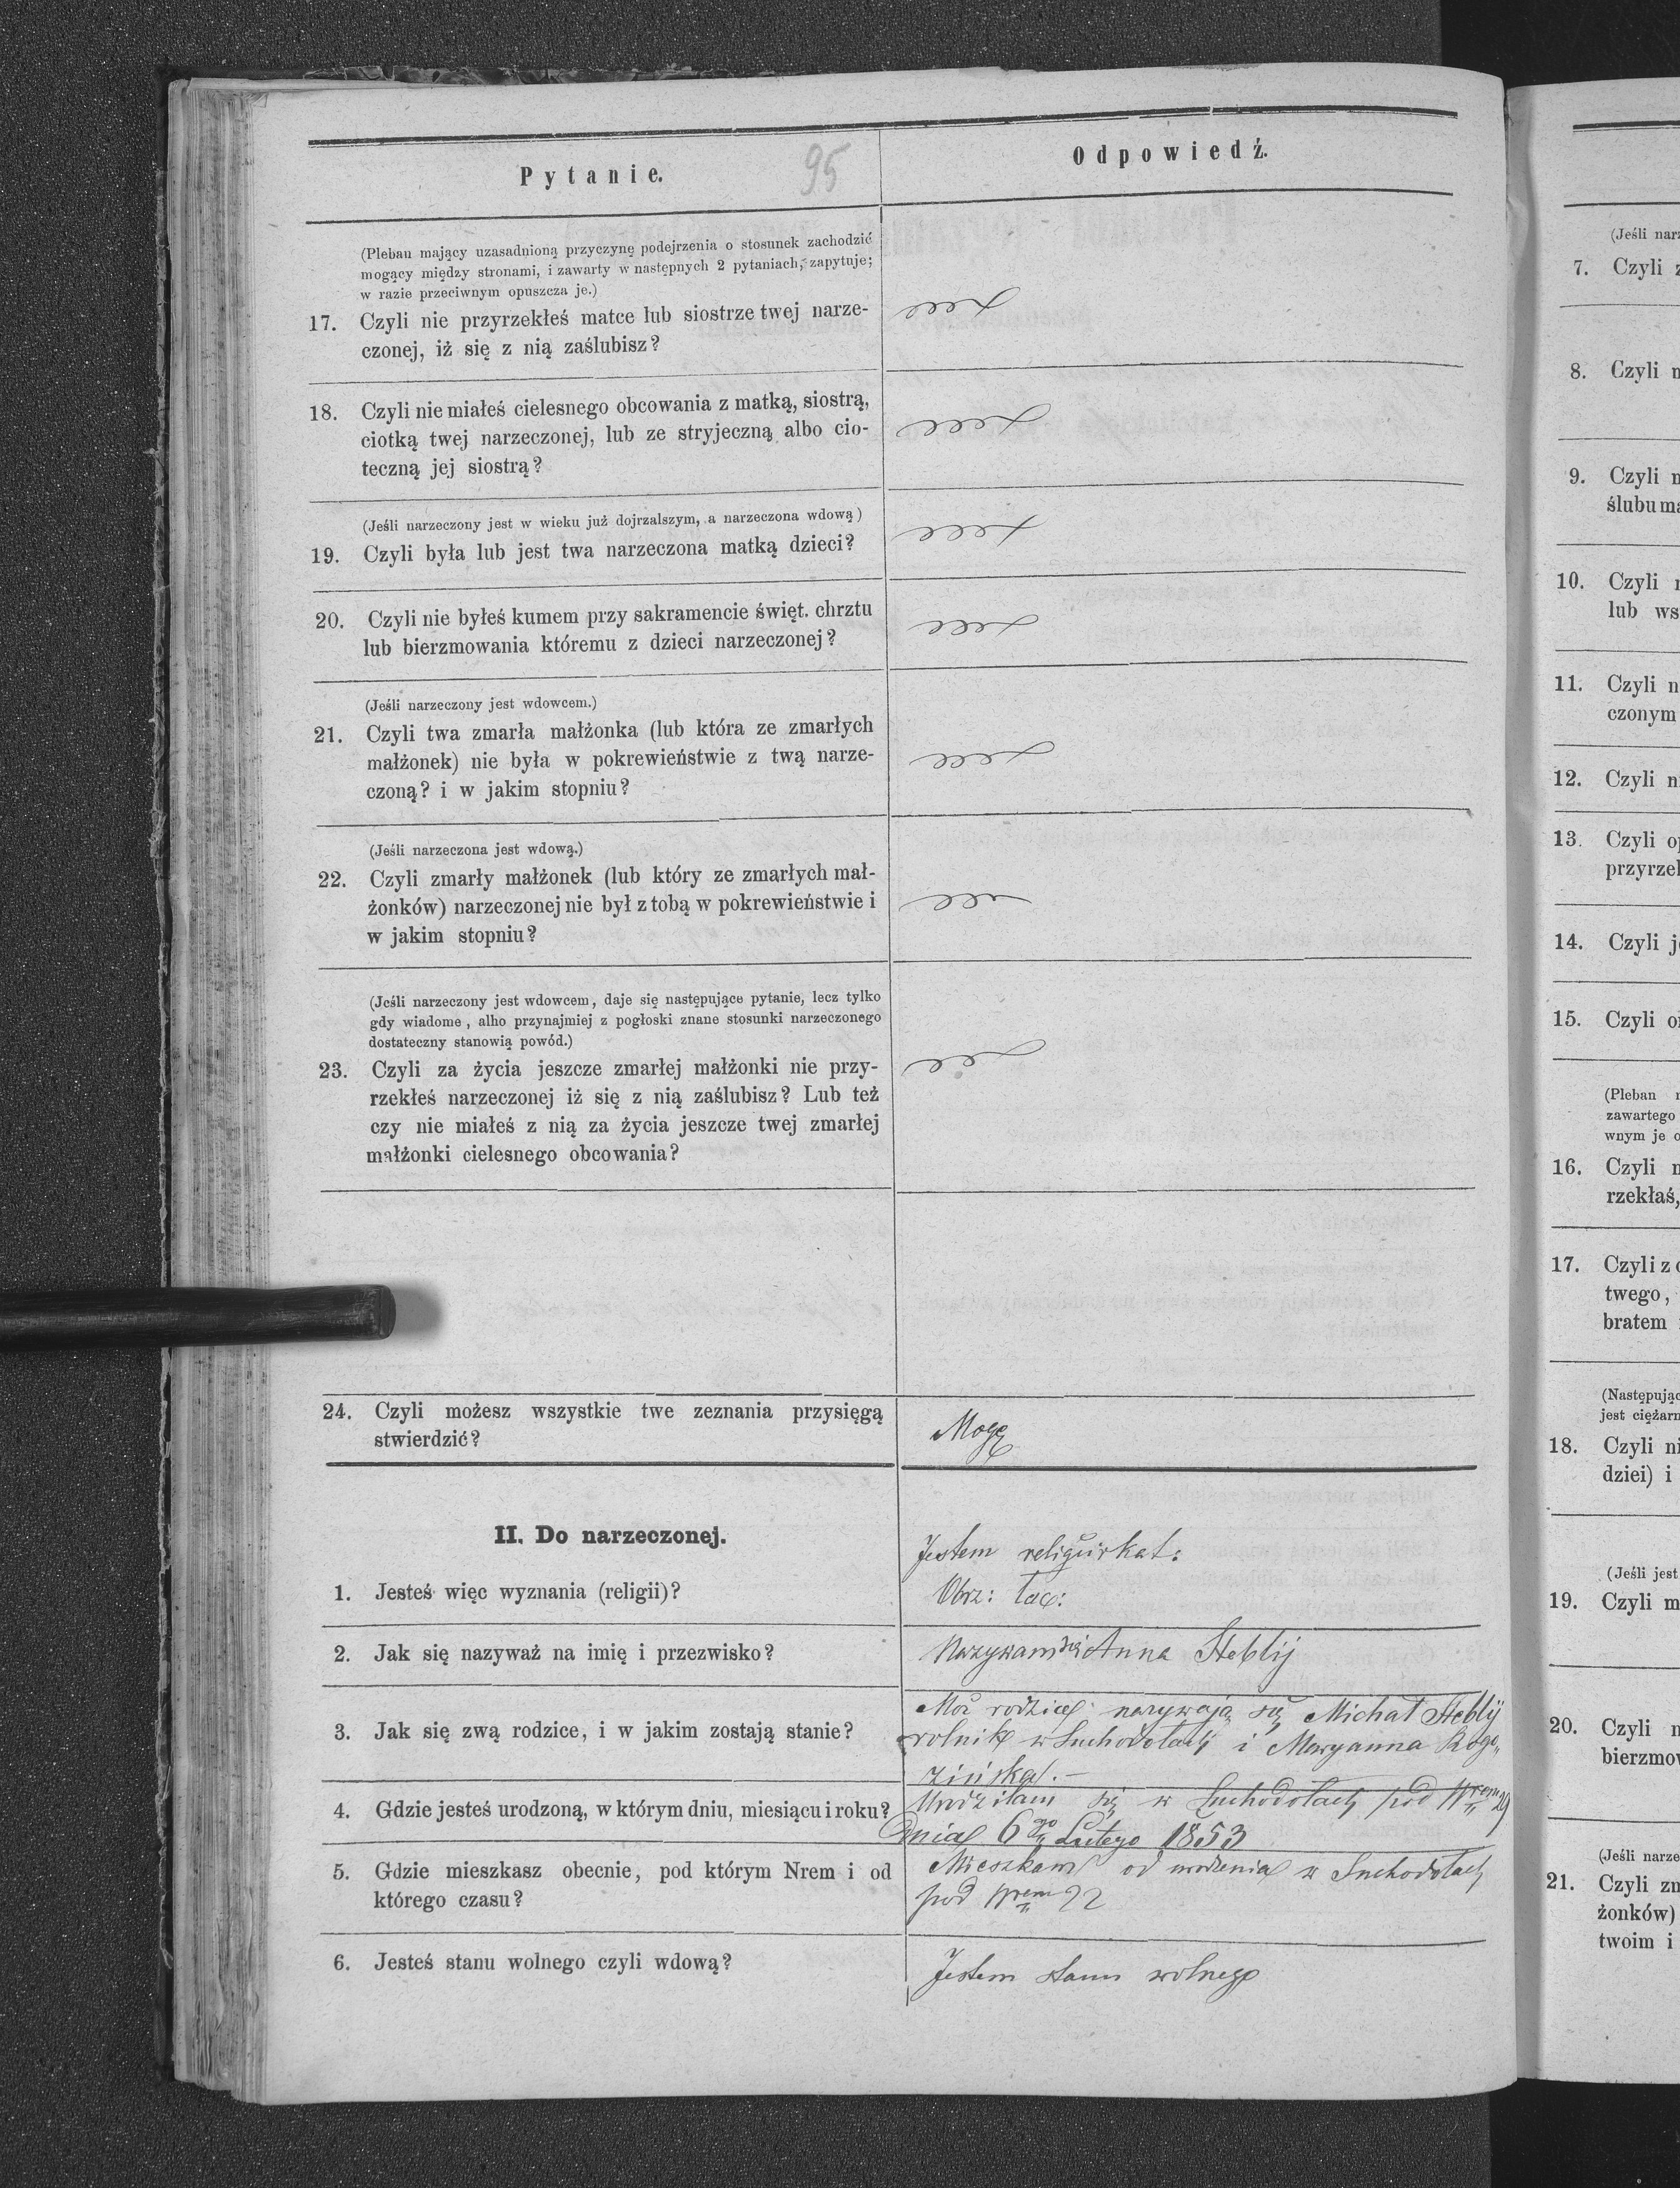 Pytanie.
95
Odpowiedź.
(Pleban mający uzasadnioną przyczynę podejrzenia o stosunek zachodzić
mogący między stronami, i zawarty w następnych 2 pytaniach, zapytuje;
w razie przeciwnym opuszcza je.)
17. Czyli nie przyrzekłeś matce lub siostrze twej narze-
czonej, iż się z nią zaślubisz?
18. Czyli nie miałeś cielesnego obcowania z matką, siostrą,
ciotką twej narzeczonej, lub ze stryjeczną albo cio-
teczną jej siostrą?
(Jeśli narzeczony jest w wieku już dojrzalszym, a narzeczona wdową)
19. Czyli była lub jest twa narzeczona matką dzieci?
20. Czyli nie byłeś kumem przy sakramencie święt. chrztu
lub bierzmowania któremu z dzieci narzeczonej?
(Jeśli narzeczony jest wdowcem.)
21. Czyli twa zmarła małżonka (lub która ze zmarłych
małżonek) nie była w pokrewieństwie z twą narze-
czoną? i w jakim stopniu?
(Jeśli narzeczona jest wdową.)
22. Czyli zmarły małżonek (lub który ze zmarłych mał-
żonków) narzeczonej nie był z tobą w pokrewieństwie i
w jakim stopniu?
(Jeśli narzeczony jest wdowcem, daje się następujące pytanie, lecz tylko
gdy wiadome, alho przynajmiej z pogłoski znane stosunki narzeczonego
dostateczny stanowią powód.)
23. Czyli za życia jeszcze zmarłej małżonki nie przy-
rzekłeś narzeczonej iż się z nią zaślubisz? Lub też
czy nie miałeś z nią za życia jeszcze twej zmarłej
małżonki cielesnego obcowania?
24. Czyli możesz wszystkie twe zeznania przysięgą
stwierdzić?
Mogę
II. Do narzeczonej.
1. Jesteś więc wyznania (religii)?
Jestem religii rkat:
Obrz: łac:
2. Jak się nazyważ na imię i przezwisko?
Nazywam się Anna Steblij
3. Jak się zwą rodzice, i w jakim zostają stanie?
Moi rodzice nazywają się Michał Steblij
rolnik w Suchodołach i Maryanna Rogo„
zińska.–
4. Gdzie jesteś urodzoną, w którym dniu, miesiącu i roku?
Urodziłam się w Suchodołach pod Nrem 29
Dnia 6go Lutego 1853
5. Gdzie mieszkasz obecnie, pod którym Nrem i od
którego czasu?
Mieszkam od urodzenia w Suchodołach
pod Nrem 22
6. Jesteś stanu wolnego czyli wdową?
Jestem stanu wolnego
(Jeśli narz
7. Czyli z
8. Czyli n
9. Czyli n
ślubu ma
10. Czyli
lub ws
11. Czyli n
czonym
12. Czyli n
13. Czyli op
przyrzek
14. Czyli j
15. Czyli
(Pleban
zawartego
wnym je o
16. Czyli n
rzekłaś,
17. Czyli z
twego,
bratem
(Następując
jest ciężarn
18. Czyli ni
dziei) i
(Jeśli jest
19. Czyli m
20. Czyli n
bierzmow
(Jeśli narze
21. Czyli zm
żonków)
twoim i